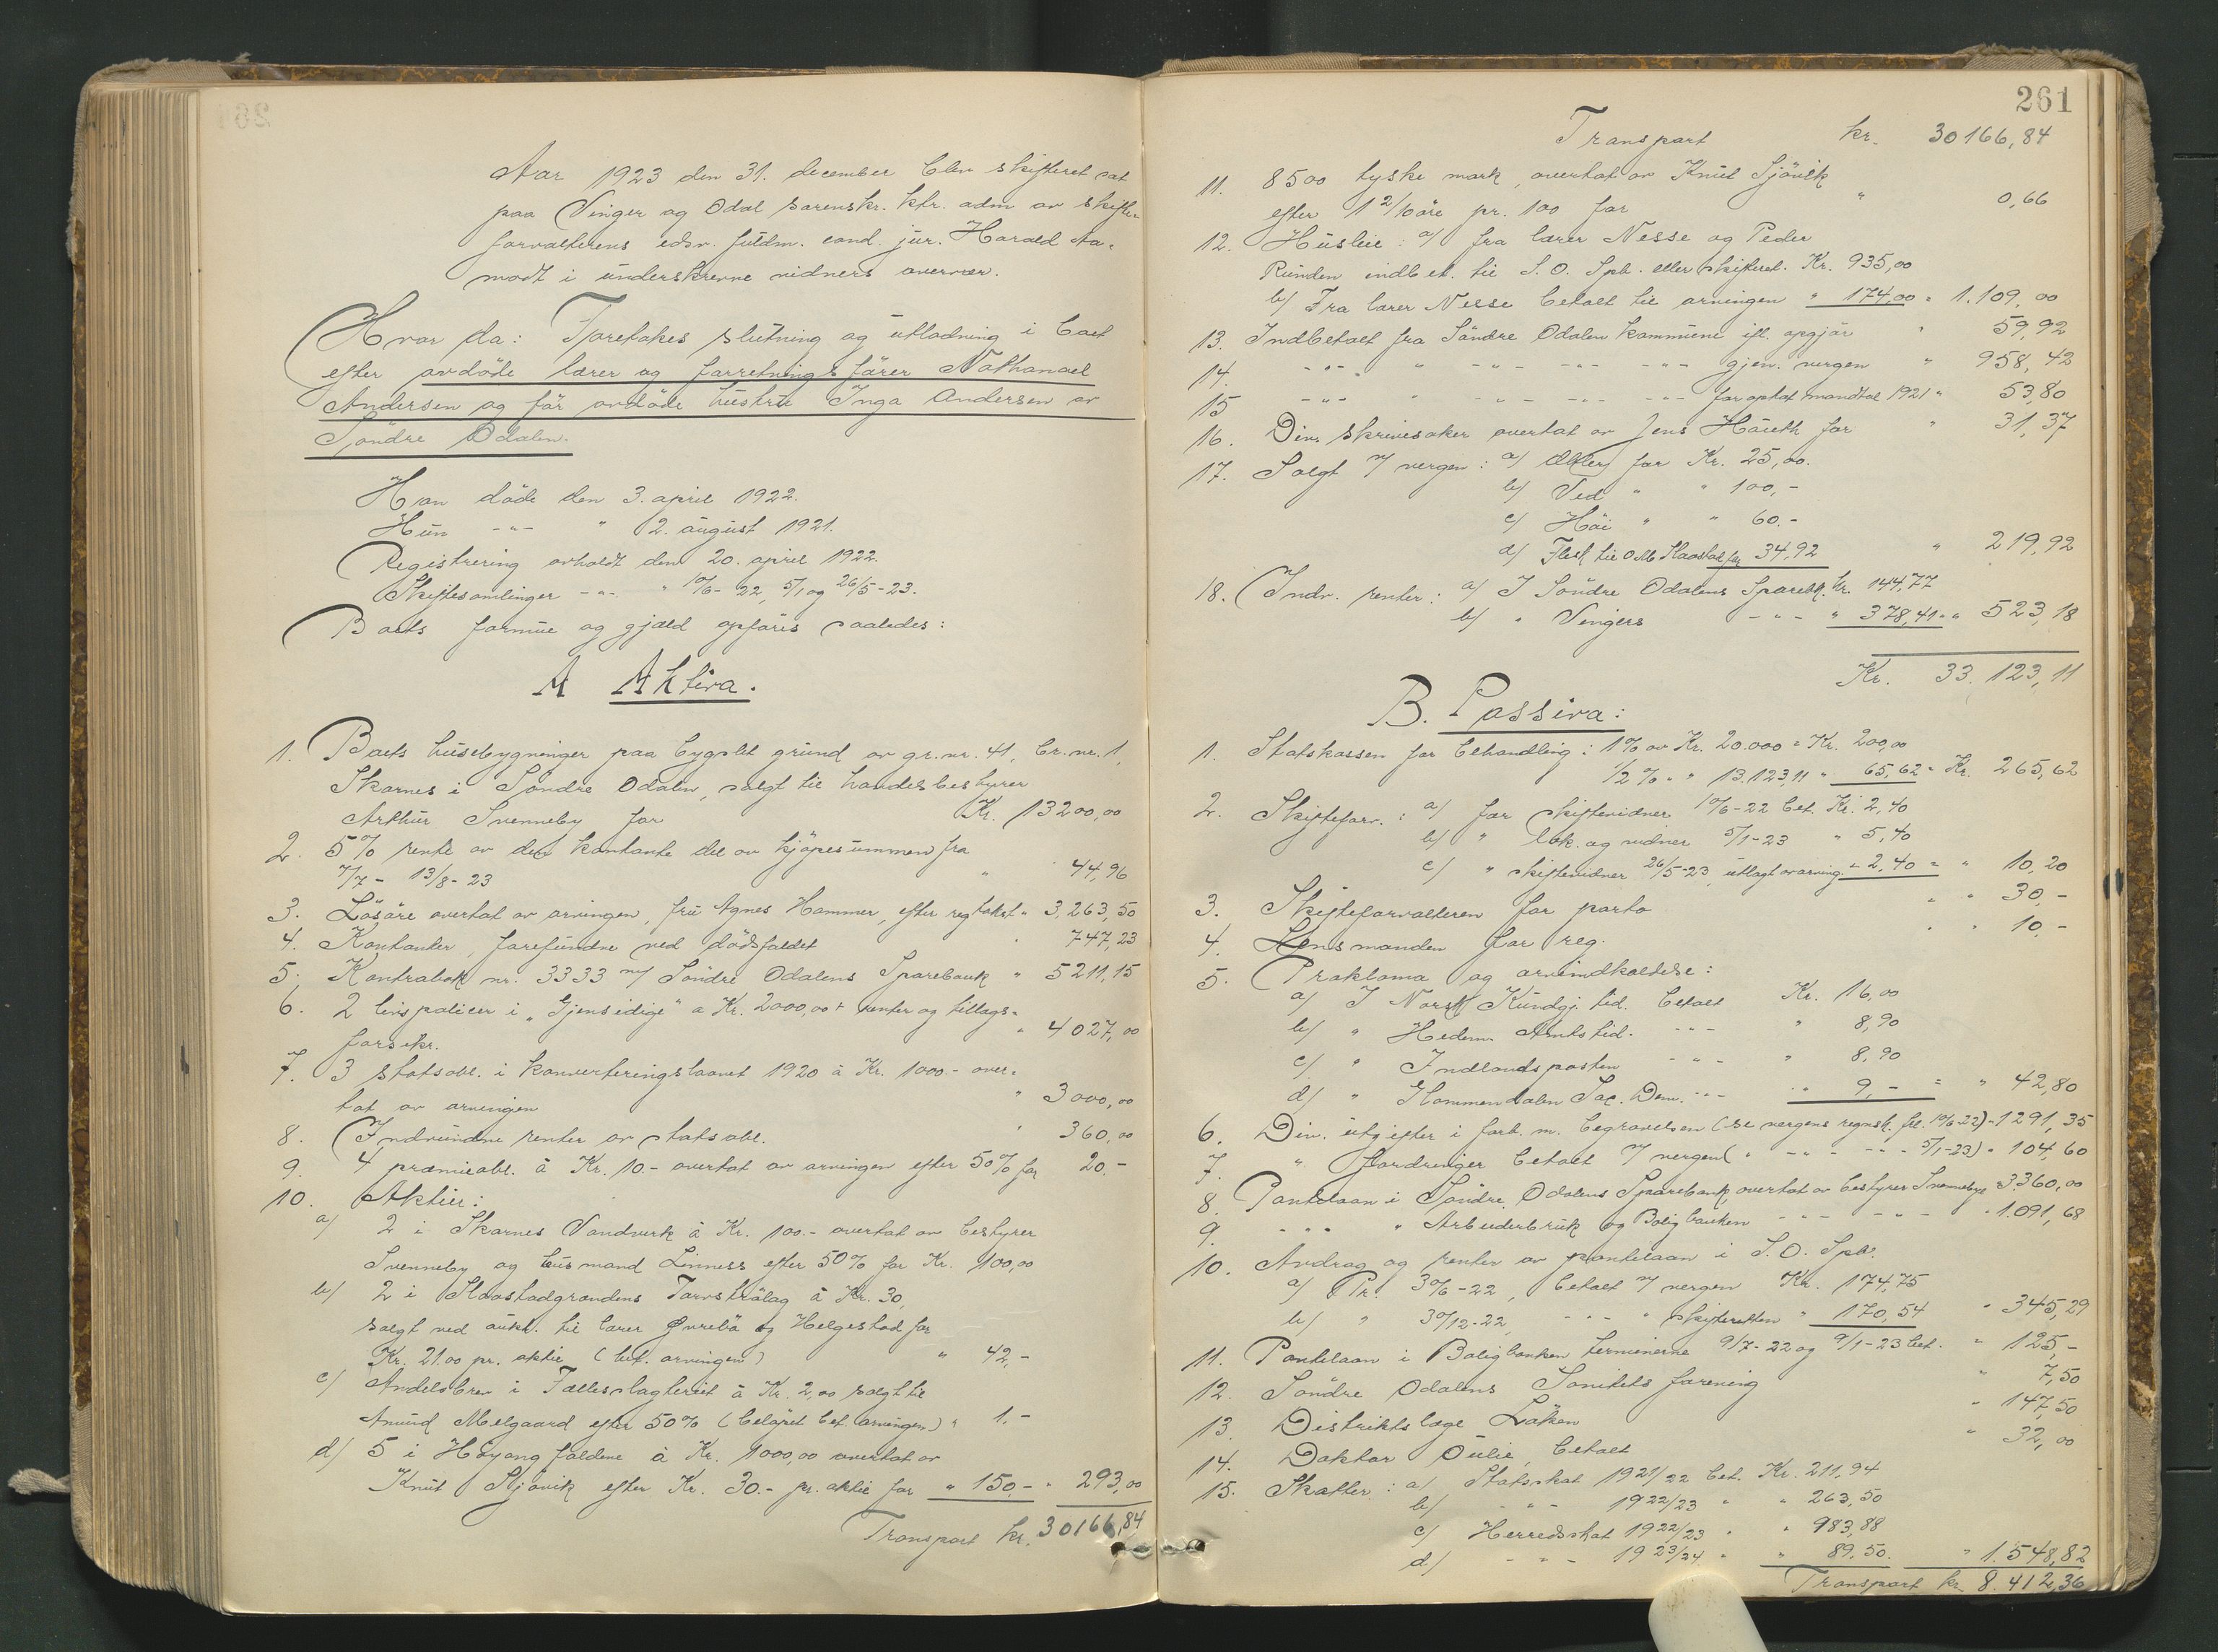 Aar 1923 den 31. december blev skifteret sat
paa Vinger og Odal sorenskr. ktr. adm av skifte-
forvalterens edsv. fuldm. cand. jur. Harald Aa-
modt i underskrevne vidners overvær.
Hvor da: Foretokes slutning og utlodning i boet
efter avdöde lærer og forretningsförer Nathanael
Andersen og för avdöde hustru Inga Andersen av
Söndre Odalen.
Han döde den 3. april 1922.
Hun -"- " 2. august 1921.
Registrering avholdt den 20. april 1922.
Skiftesamlinger -"- " 10/6-22, 5/1 og 26/5-23.
Boets formue og gjæld opföres saaledes:
A Aktiva.
1. Boets husebygninger paa bygslet grund av gr.nr. 41, br.nr. 1,
Skarnes i Söndre Odalen, solgt til handelsbestyrer
Arthur Svenneby for Kr. 13200,00
2. 5% rente av den kontante del av kjöpesummen fra
7/7 - 13/8-23 " 44,96
3. Lösöre overtat av arvingen, fru Agnes Hammer, efter reg.takst " 3,263,50
4. Kontanter, forefundne ved dödsfaldet " 747,23
5. Kontrabok nr. 3333 m/ Söndre Odalens Sparebank " 5211,15
6. 2 livspolicer i "Gjensidige" a Kr. 2000,00 + renter og tillags-
forsikr. " 4027,00
7. 3 statsobl. i konverteringslaanet 1920 à Kr. 1000.- over-
tat av arvingen " 3000,00
8. Indvundne renter av statsobl. " 360,00
9. 4 præmieobl. à Kr. 10- overtat av arvingen efter 50% for 20.-
10. Aktier:
a) 2 i Skarnes Vandverk à Kr. 100.- overtat av bestyrer
Svenneby og husmand Linness efter 50% for Kr. 100,00
b) 2 i Slaastadgrændens Torvströlag à Kr. 30,
solgt ved aukt. til lærer Övrebö og Helgestad for
Kr. 21.00 pr. aktie (bet. arvingen) " 42,-
c) Andelsbrev i Fællesslagteriet à Kr. 2,00 solgt til
Amund Melgaard efter 50% (belöpet bet. arvingen) " 1.-
d) 5 i Höyangfaldene à Kr. 1000,00 overtat av
Knut Sjövik efter Kr. 30.- pr. aktie for " 150,- " 293,00
Transport kr. 30166,84
261
Transport kr. 30166,84
11. 8500 tyske mark, overtat av Knut Sjövik
efter 1 2/10 öre pr. 100 for " 0,66
12. Husleie: a) fra lærer Nesse og Peder
Runden indbet. til S. O. Spb. eller skifteret. Kr. 935,00
b) Fra lærer Nesse betalt til arvingen " 174,00 = 1.109,00
13. Indbetalt fra Söndre Odalen kommune ifl. opgjör " 59,92
14. -"- " -"- -"- -"- gjen. vergen " 958,42
15 -"- " -"- -"- -"- for optat mandtal 1921 " 53,80
16. Div. skrivesaker overtat av Jens Haueth for " 31,37
17. Solgt v/ vergen: a) Æbler for Kr. 25,00.
b) Ved " " 100,-
c) Höi " " 60.-
d) Flesk til O M Slaastad for 34,92 " 219,92
18. Indv. renter: a) I Söndre Odalens Sparebk. Kr. 144,77
b) " Vingers -"- " 378,41 = " 523,18
Kr. 33.123,11
B. Passiva:
1. Statskassen for behandling: 1% av Kr. 20.000 = Kr. 200,00
1/2% " " 13.123,11 " 65,62 = Kr. 265,62
2. Skifteforv.: a) for skiftevidner 10/6-22 bet. Kr. 2,40
b) " lok. og vidner 5/1-23 " 5,40
c) " skiftevidner 26/5-23, utlagt av arving. " 2,40 = " 10,20
3. Skifteforvalteren for porto " " 30,-
4. Lensmanden for reg. " " 10,-
5. Proklama og arveindkaldelse:
a) I Norsk Kundgj. tid. betalt Kr. 16,00
b) " Hedem. Amtstid. -"- " 8,90
c) " Indlandsposten -"- " 8,90
d) " Glommendalen Soc. Dem. -"- " 9,- = " 42,80
6. Div. utgifter i forb. m. begravelsen (se vergens regnsk. fol. 10/6-22) " 1291,35
7. " fordringer betalt v/ vergen ( " -"- " -"- 5/1-23) " 104,60
8. Pantelaan i Söndre Odalens Sparebank, overtat av bestyrer Svenneby " 3.360,00
9. -"- " Arbeiderbruk og Boligbanken -"- -"- " 1.091,68
10. Avdrag og renter av pantelaan i S. O. Spb.
a) Pr. 30/6-22, betalt v/ vergen Kr. 174,75
b) " 30/12-22, -"- " skifteretten " 170,54 " 345,29
11. Pantelaan i Boligbanken terminerne 9/7-22 og 9/1-23 bet. " 125,-
12. Söndre Odalens Sanitetsforening " 7,50
13. Distriktslæge Löken " 147,50
14. Doktor Oulie, betalt " 32,00
15. Skatter: a) Statsskat 1921/22 bet. Kr. 211,94
b) -"- 1922/23 " " 263,50
c) Herredsskat 1922/23 " " 983,88
d) -"- 1923/24 " " 89,50. " 1.548,82
Transport kr. 8.412,36